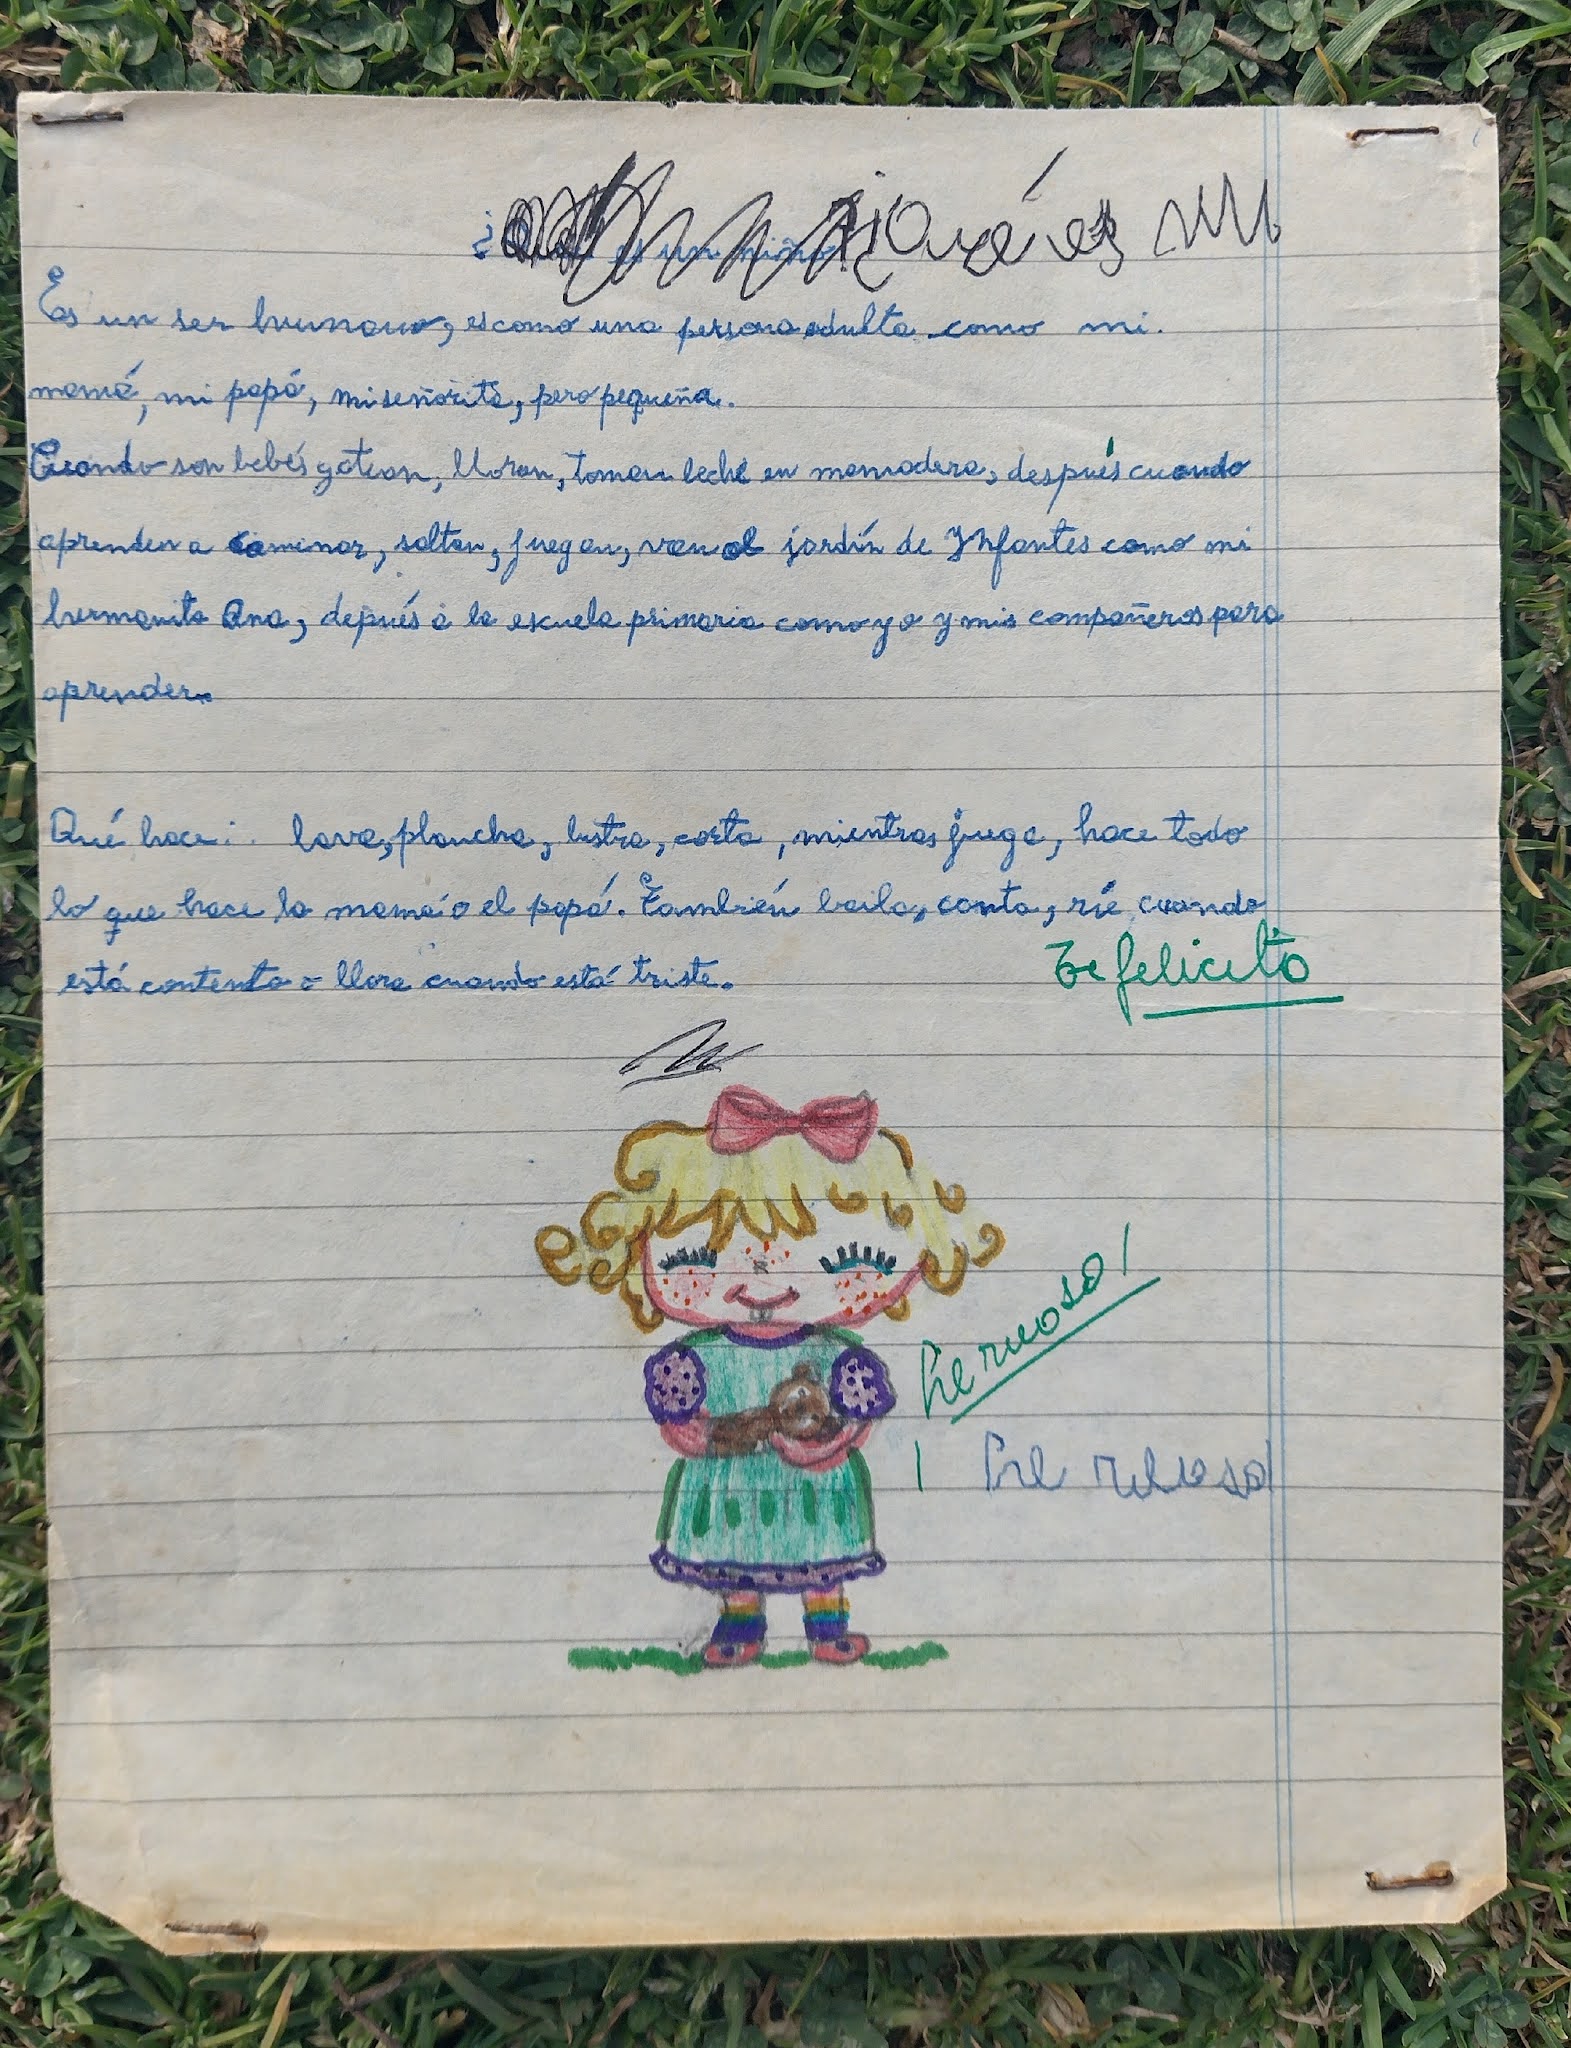 ¿ es un niño?
¿Qué es
Es un ser humano, es como una persona adulta como mi.
mamá, mi papá, mi señorita, pero pequeña.
Cuando son bebés gatean, lloran, toman leche en mamadera, después cuando
aprenden a caminar, saltan, juegan, van al jardín de Infantes como mi
hermanita Ana, depués a la escuela primaria como yo y mis compañeros para
aprender.
Qué hace: lava, plancha, lustra, corta, mientras juega, hace todo
lo que hace la mamá o el papá. También baila, canta, ríe cuando
está contento o llora cuando está triste.
Te felicito